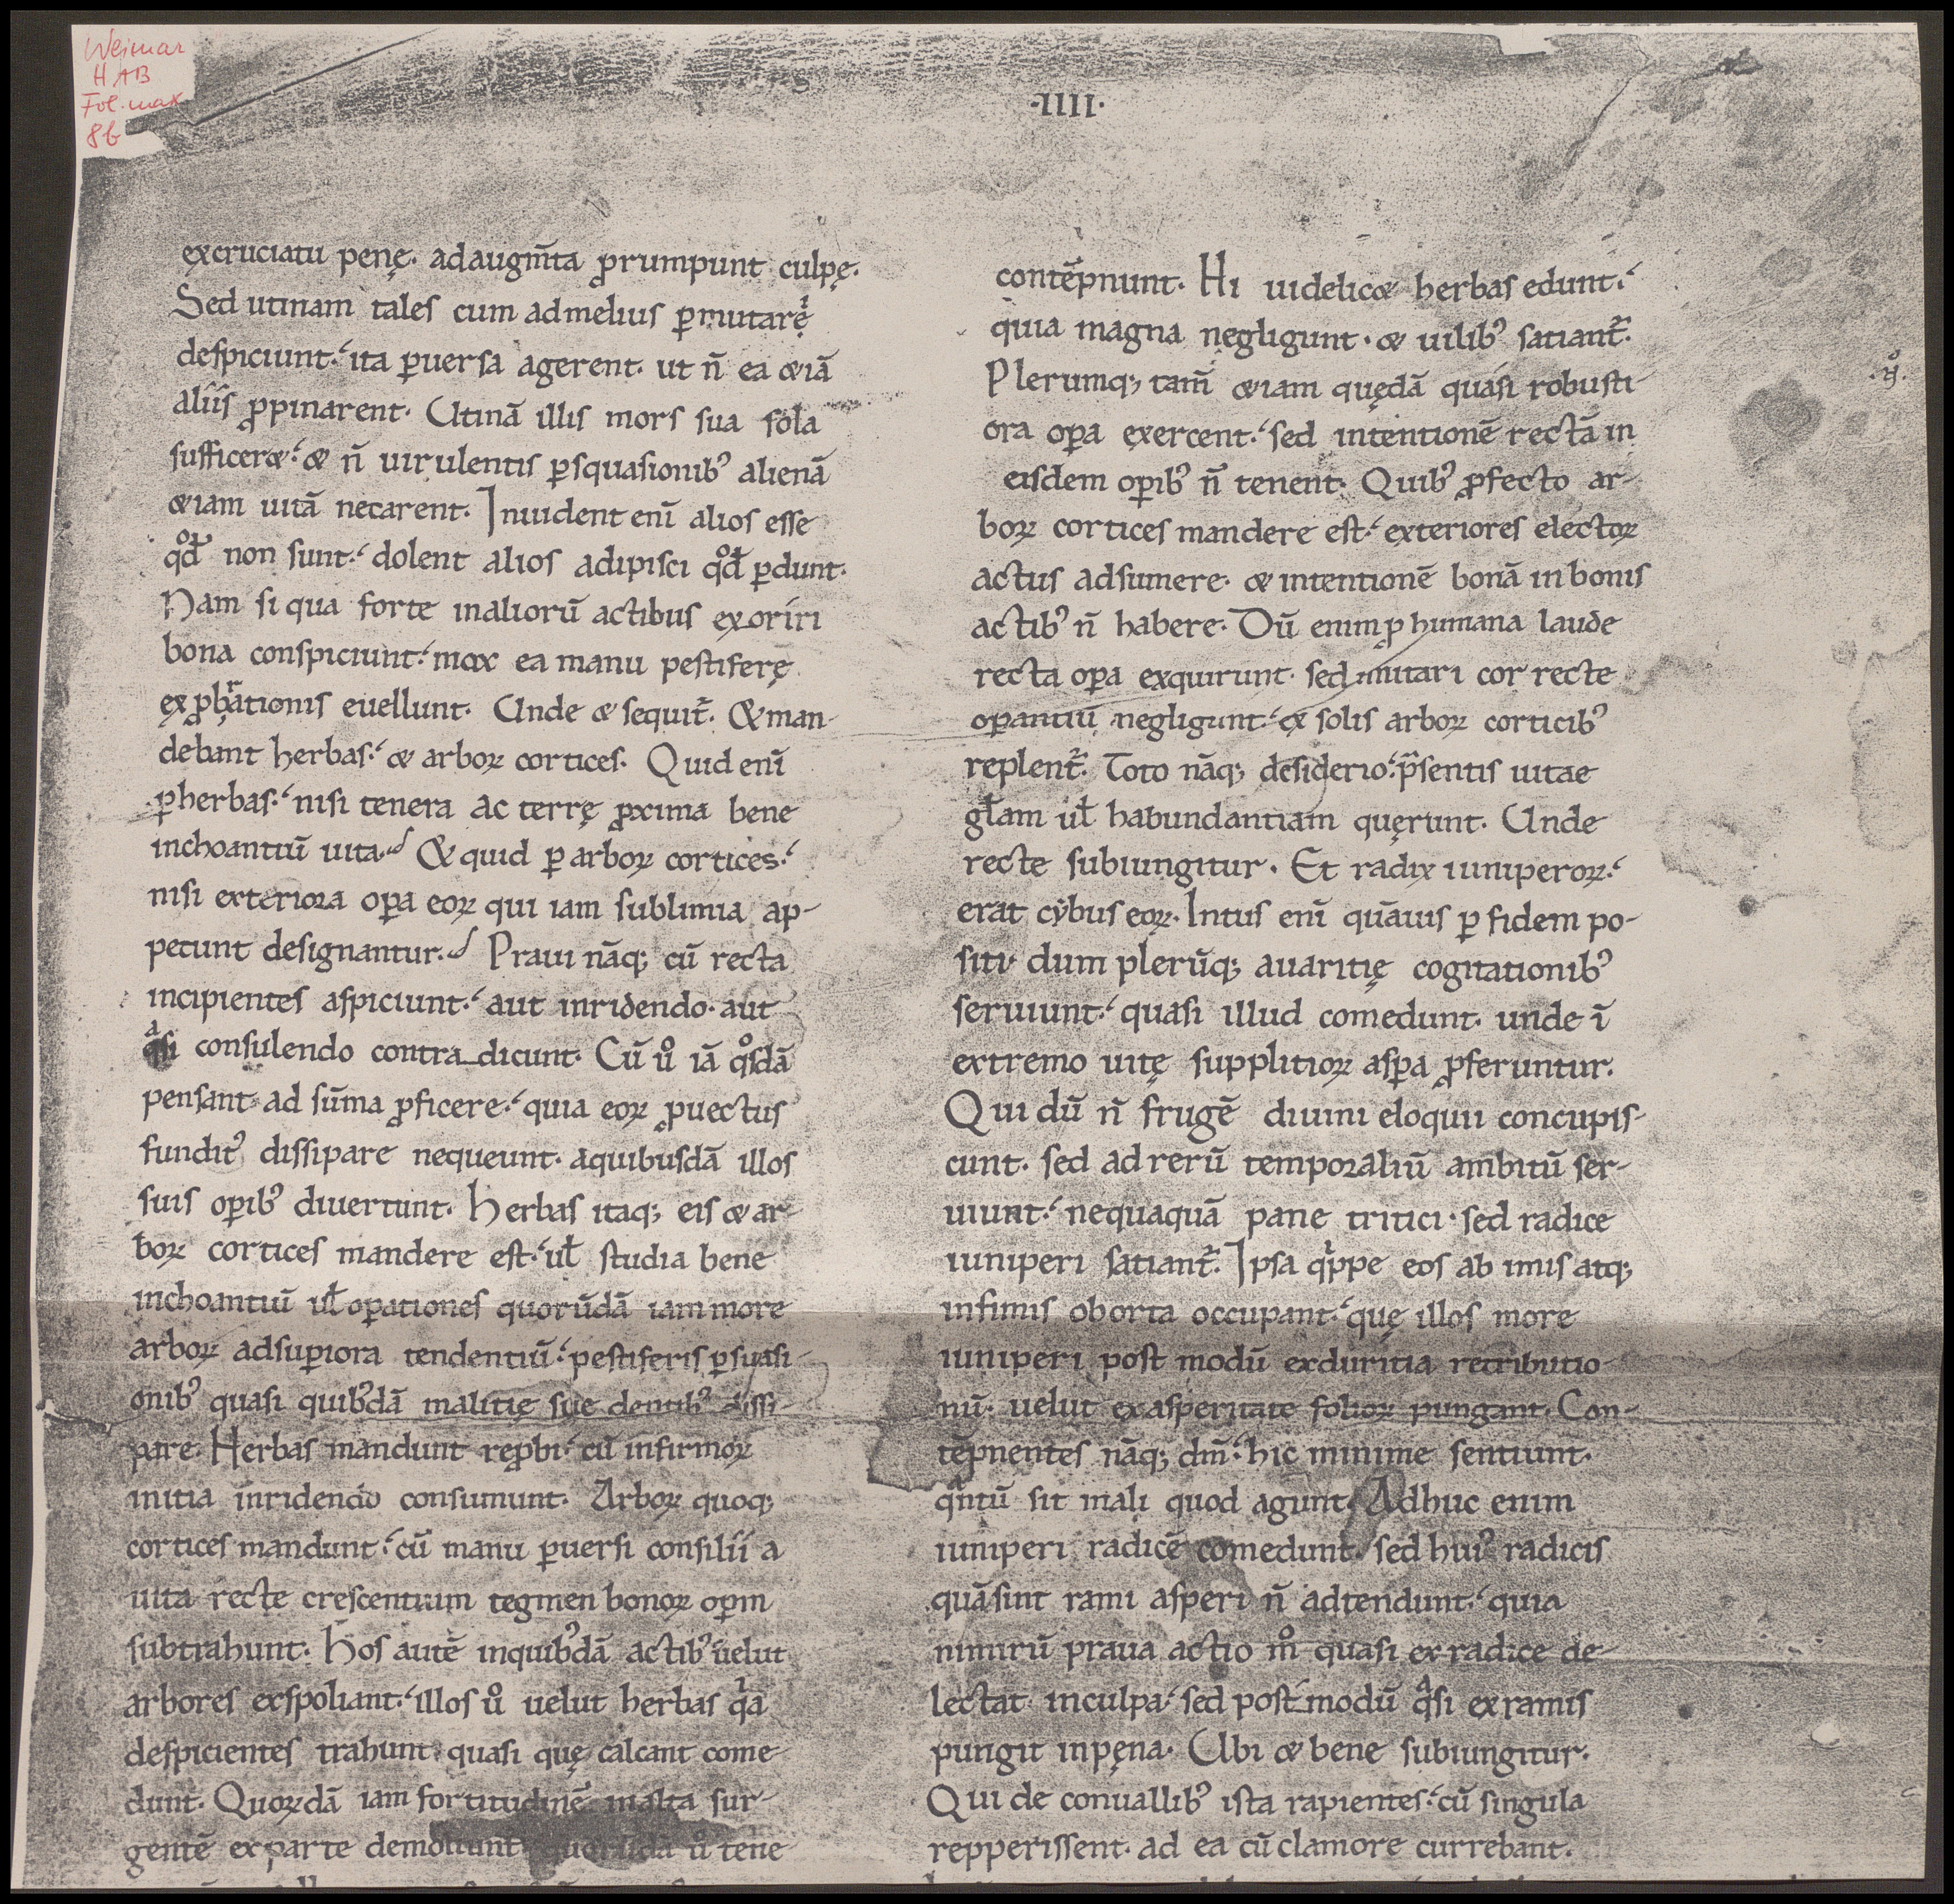 Weimar
HAB
Fol. max
8b
·IIII·
excruciatu penę. adaugm̄ta ꝓrumpunt culpę.
Sed utinam tales cum admelius ꝑmutarę̍
despiciunt. ita ꝑuersa agerent. ut n̄ ea &iā
aliis ꝓpinarent. Utinā illis mors sua sola
sufficer& & n̄ uirulentis ꝑsquasionib᾽ alienā
&iam uitā necarent. Inuident eni̅ alios esse
qđͦ non sunt. dolent alios adipisci qđͦ ꝑdunt.
Nam si qua forte inaliorū actibus exoriri
bona conspiciunt. mox ea manu pestiferę
exꝓbrationis euellunt. Unde & sequit᷑. & man-
debant herbas. & arboꝝ cortices. Quid eni̅
ꝑherbas. nisi tenera ac terrę ꝓxima bene
inchoantiū uita. & quid ꝑ arboꝝ cortices.
nisi exteriora oꝑa eoꝝ qui iam sublimia ap-
petunt designantur. Praui nāq; cū recta
incipientes aspiciunt. aut inridendo. aut
qͣsi consulendo contra dicunt. Cū uͦ iā qͦsdā
pensant ad sūma ꝓficere. quia eoꝝ ꝓuectus
fundit᾽ dissipare nequeunt. aquibusdā illos
suis oꝑib᾽ diuertunt. Herbas itaq; eis & ar-
boꝝ cortices mandere est. ut̵ studia bene
inchoantiū ut̵ oꝑationes quorūdā iam more
arboꝝ adsuꝑiora tendentiū. pestiferis ꝑsuasi-
onib᾽ quasi quib᾽dā malitię suę dentib᾽ dissi-
pare. Herbas mandunt reꝓbi. cū infirmoꝝ
initia inridendo consumunt. Arboꝝ quoq;
cortices mandunt. cū manu ꝑuersi consilii a
uita recte crescentium tegmen bonoꝝ oꝑm
subtrahunt. Hos autē inquib᾽dā actib᾽ uelut
arbores exspoliant. illos uͦ uelut herbas qͥa
despicientes trahunt. quasi quę calcant come-
dunt. Quoꝝdā iam fortitudinē malta sur-
gentē exparte demoliunt quorūdā uͦ tene-
contēpnunt. Hi uidelic& herbas edunt.
quia magna negligunt. & uilib᾽ satiant᷑.
Plerumq; tam̄ &iam quędā quasi robusti-
ora oꝑa exercent. sed intentionē rectā in
eisdem oꝑib᾽ n̄ tenent. Quib᾽ ꝓfecto ar-
boꝝ cortices mandere est. exteriores electoꝝ
actus adsumere. & intentionē bonā in bonis
actib᾽ n̄ habere. Dū enim ꝓ humana laude
recta oꝑa exquirunt. sed mutari cor recte
oꝑantiū negligunt. ex solis arboꝝ corticib᾽
replent᷑. Toto nāq; desiderio. p̄sentis uitae
gl̄am ut̵ habundantiam quęrunt. Unde
recte subiungitur. Et radix iuniperoꝝ.
erat cybus eoꝝ. Intus eni̅ quāuis ꝑ fidem po-
siti. dum plerūq; auaritię cogitationib᾽
seruiunt. quasi illud comedunt. unde ī
extremo uitę supplitioꝝ asꝑa ꝓferuntur.
Qui dū n̄ frugē diuini eloquii concupis-
cunt. sed ad rerū temporaliū ambitū ser-
uiunt. nequaquā pane tritici. sed radice
iuniperi satiant᷑. Ipsa qͥppe eos ab imis atq;
infimis oborta occupant. quę illos more
iuniperi post modū exduritia retributio-
nū. uelut exasperitate folioꝝ pungant. Con-
tēpnentes nāq; dm̄. hic minime sentiunt.
qͣntū sit mali quod agunt. Adhuc enim
iuniperi radicē comedunt. sed hui᾽ radicis
quā sint rami asperi n̄ adtendunt. quia
nimirū praua actio mͦ quasi ex radice de-
lectat inculpa. sed post modū qͣsi exramis
pungit inpęna. Ubi & bene subiungitur.
Qui de conuallib᾽ ista rapientes. cū singula
repperissent. ad ea cū clamore currebant.